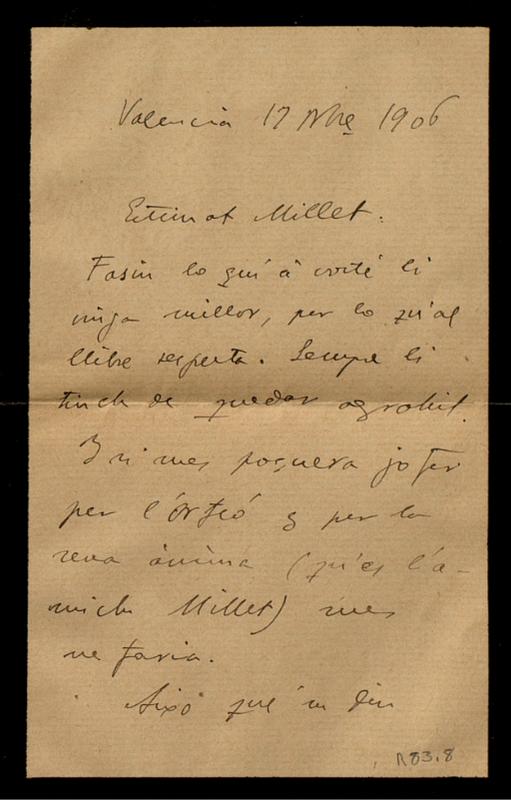 Valencia 17 Nbre 1906
Estimat Millet:
Fasin lo qu'á vosté li
vinga millor, per lo qu'al
llibre respecta. Sempre li
tinch de quedar agrahit.
Y si mes pogues jo fer
per l'Orfeó y per la
seva ánima (qu'es l'a-
mich Millet) mes
ne faria.
Aixó qué'm diu
R83.8